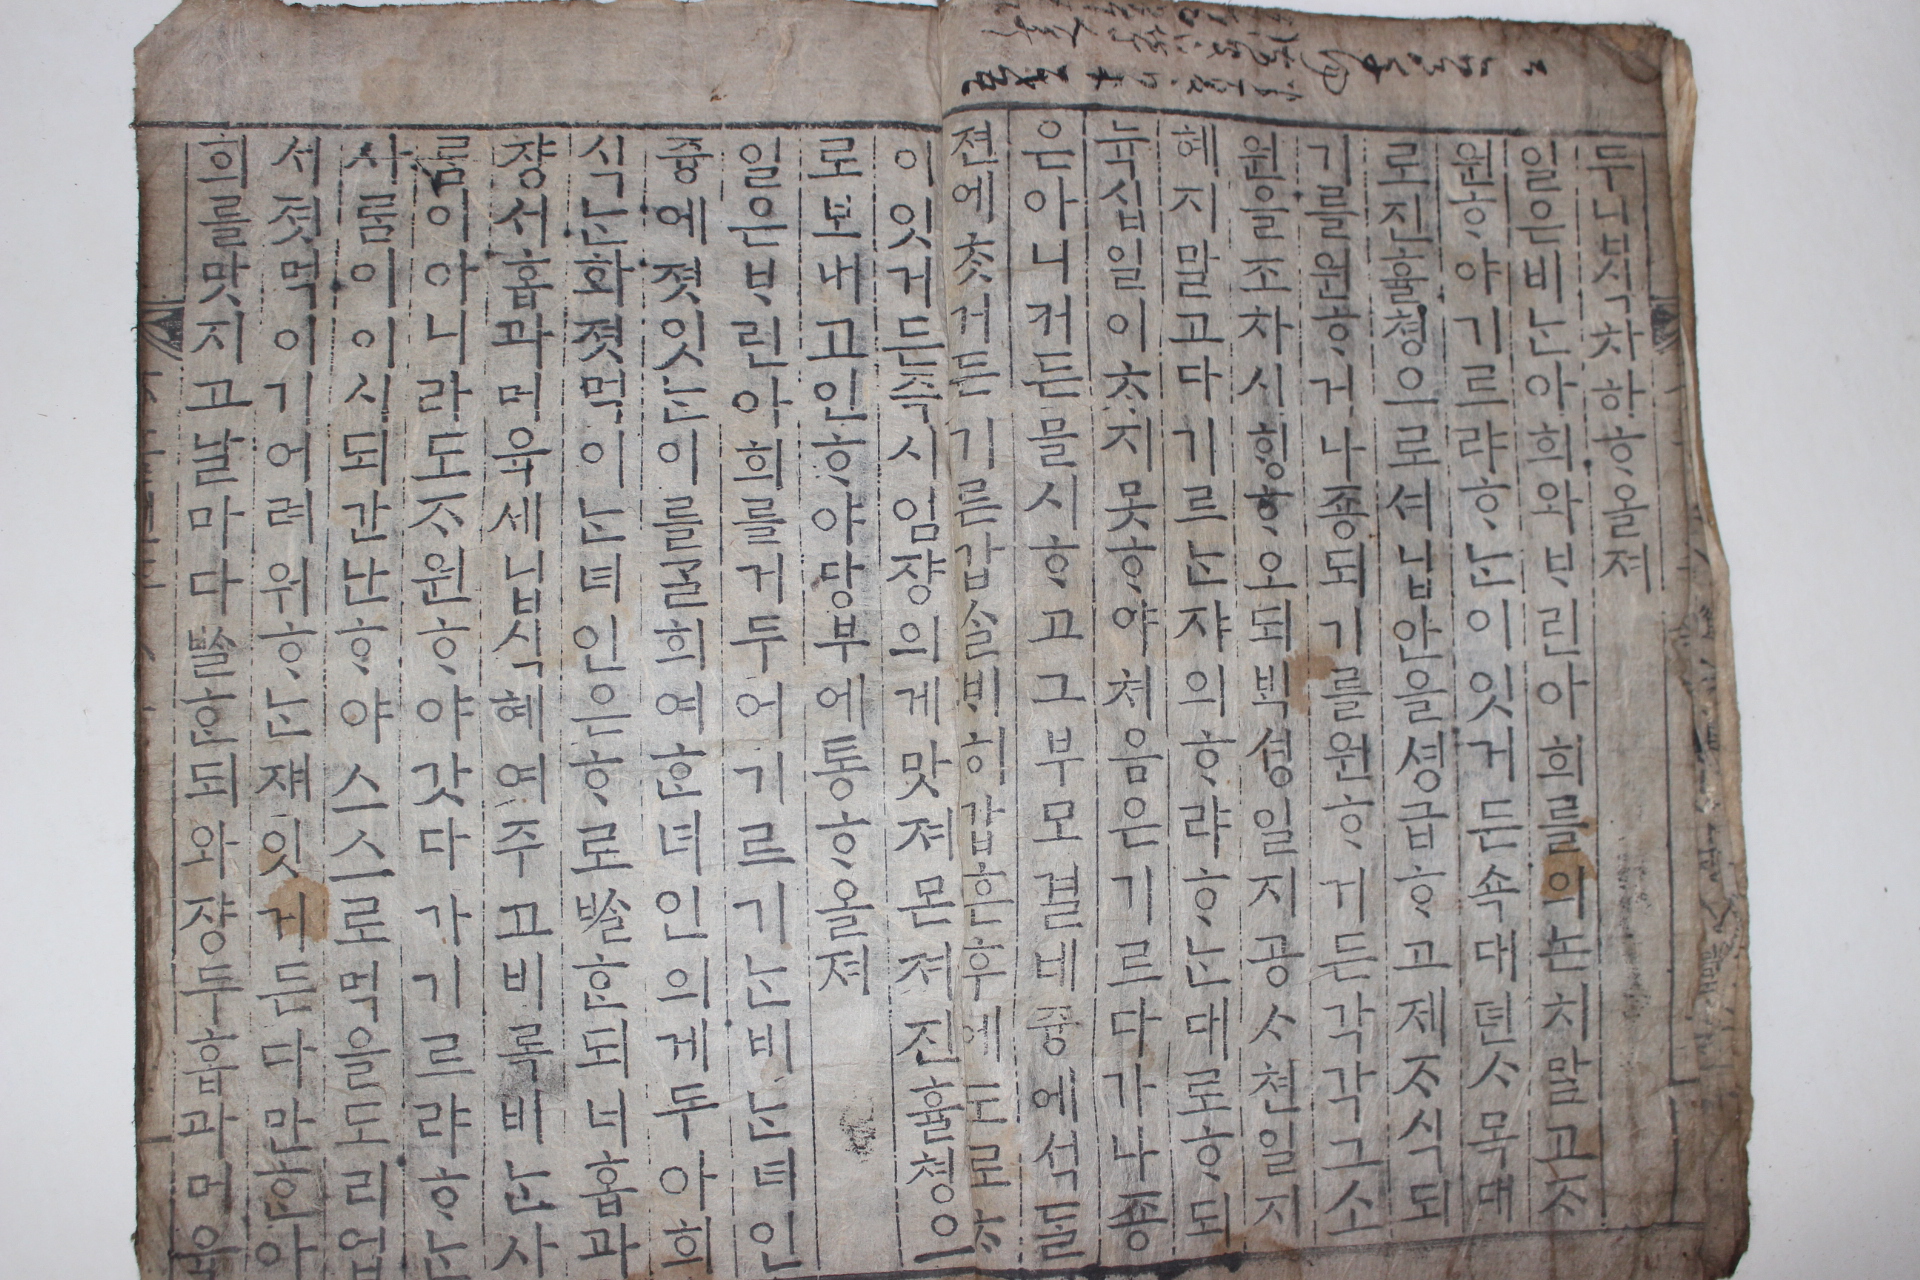 두니ᄉᆡᆨ차하ᄒᆞ올져
일은비ᄂᆞᆫ아희와ᄇᆞ린아희를의논치말고ᄌᆞ
원ᄒᆞ야기르랴ᄒᆞᄂᆞᆫ이잇거든쇽대뎐ᄉᆞ목대
로진휼쳥으로셔닙안을셩급ᄒᆞ고제ᄌᆞ식되
기를원ᄒᆞ거나죵되기를원ᄒᆞ거든각각그소
원을조차시ᄒᆡᆼᄒᆞ오되ᄇᆡᆨ셩일지공ᄉᆞ쳔일지
혜지말고다기르ᄂᆞᆫ쟈의ᄒᆞ랴ᄒᆞᄂᆞᆫ대로ᄒᆞ되
뉵십일이ᄎᆞ지못ᄒᆞ야쳐음은기르다가나죵
은아니커든믈시ᄒᆞ고그부모결네즁에석ᄃᆞᆯ
젼에ᄎᆞᆺ거든기른갑ᄉᆞᆯᄇᆡ히갑흔후에도로ᄎᆞᆺ
이잇거든즉시임쟝의게맛져몬져진휼쳥으
로보내고인ᄒᆞ야당부에통ᄒᆞ올져
일은ᄇᆞ린아희를거두어기르기ᄂᆞᆫ비ᄂᆞᆫ녀인
즁에졋잇ᄂᆞᆫ이를ᄀᆞᆯ희여ᄒᆞᆫ녀인의게두아희
식ᄂᆞᆫ화졋먹이ᄂᆞᆫ녀인은ᄒᆞ로ᄡᆞᆯᄒᆞᆫ되너홉과
쟝서홉과머육세닙식혜여주고비록비ᄂᆞᆫ사
ᄅᆞᆷ이아니라도ᄌᆞ원ᄒᆞ야갓다가기르랴ᄒᆞᄂᆞᆫ
사ᄅᆞᆷ이이시되간난ᄒᆞ야스스로먹을도리업
서졋먹이기어려워ᄒᆞᄂᆞᆫ쟤잇거든다만ᄒᆞᆫ아
희를맛지고날마다ᄡᆞᆯᄒᆞᆫ되와쟝두홉과머육